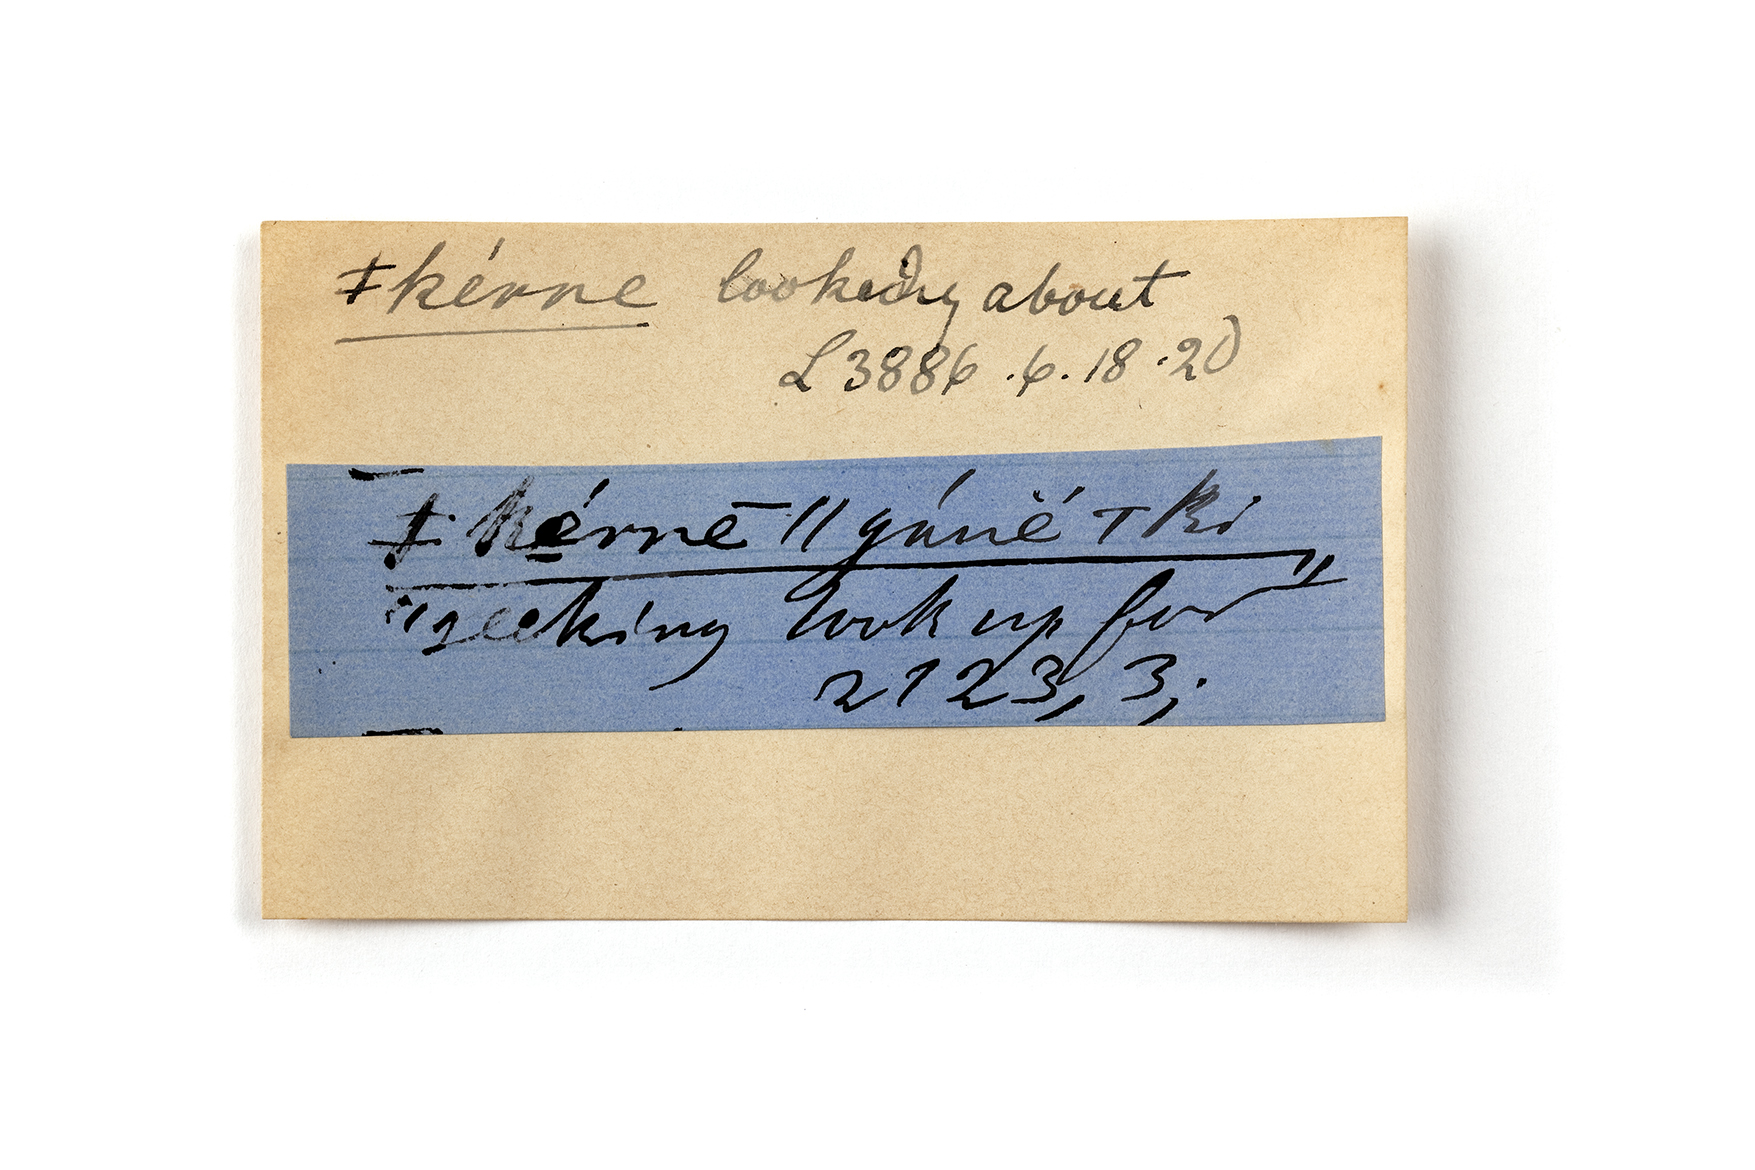 ǂkérne looking about
L 3886 . 6 . 18 . 20
ǂ kérnē ǁ gáuĕ́ T ki
"seeking look up for"
2123, 3,